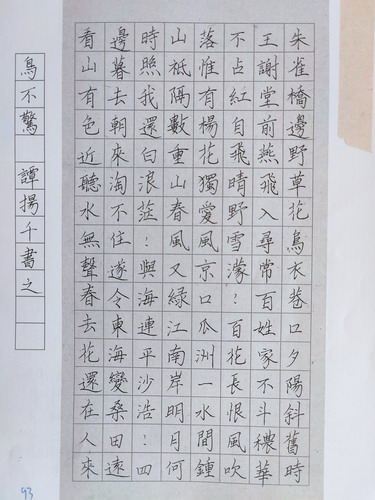 朱雀橋邊野草花烏衣巷口夕陽斜舊時
王謝堂前燕飛入尋常百姓家不斗穠華
不占紅自飛晴野雪濛〻百花長恨風吹
落惟有楊花獨愛風京口瓜洲一水間鍾
山祗隔數重山春風又綠江南岸明月何
時照我還白浪茫〻與海連平沙浩〻四
邊暮去朝來淘不住遂令東海變桑田遠
看山有色近聽水無聲春去花還在人來
鳥不驚 譚揚千書之
93